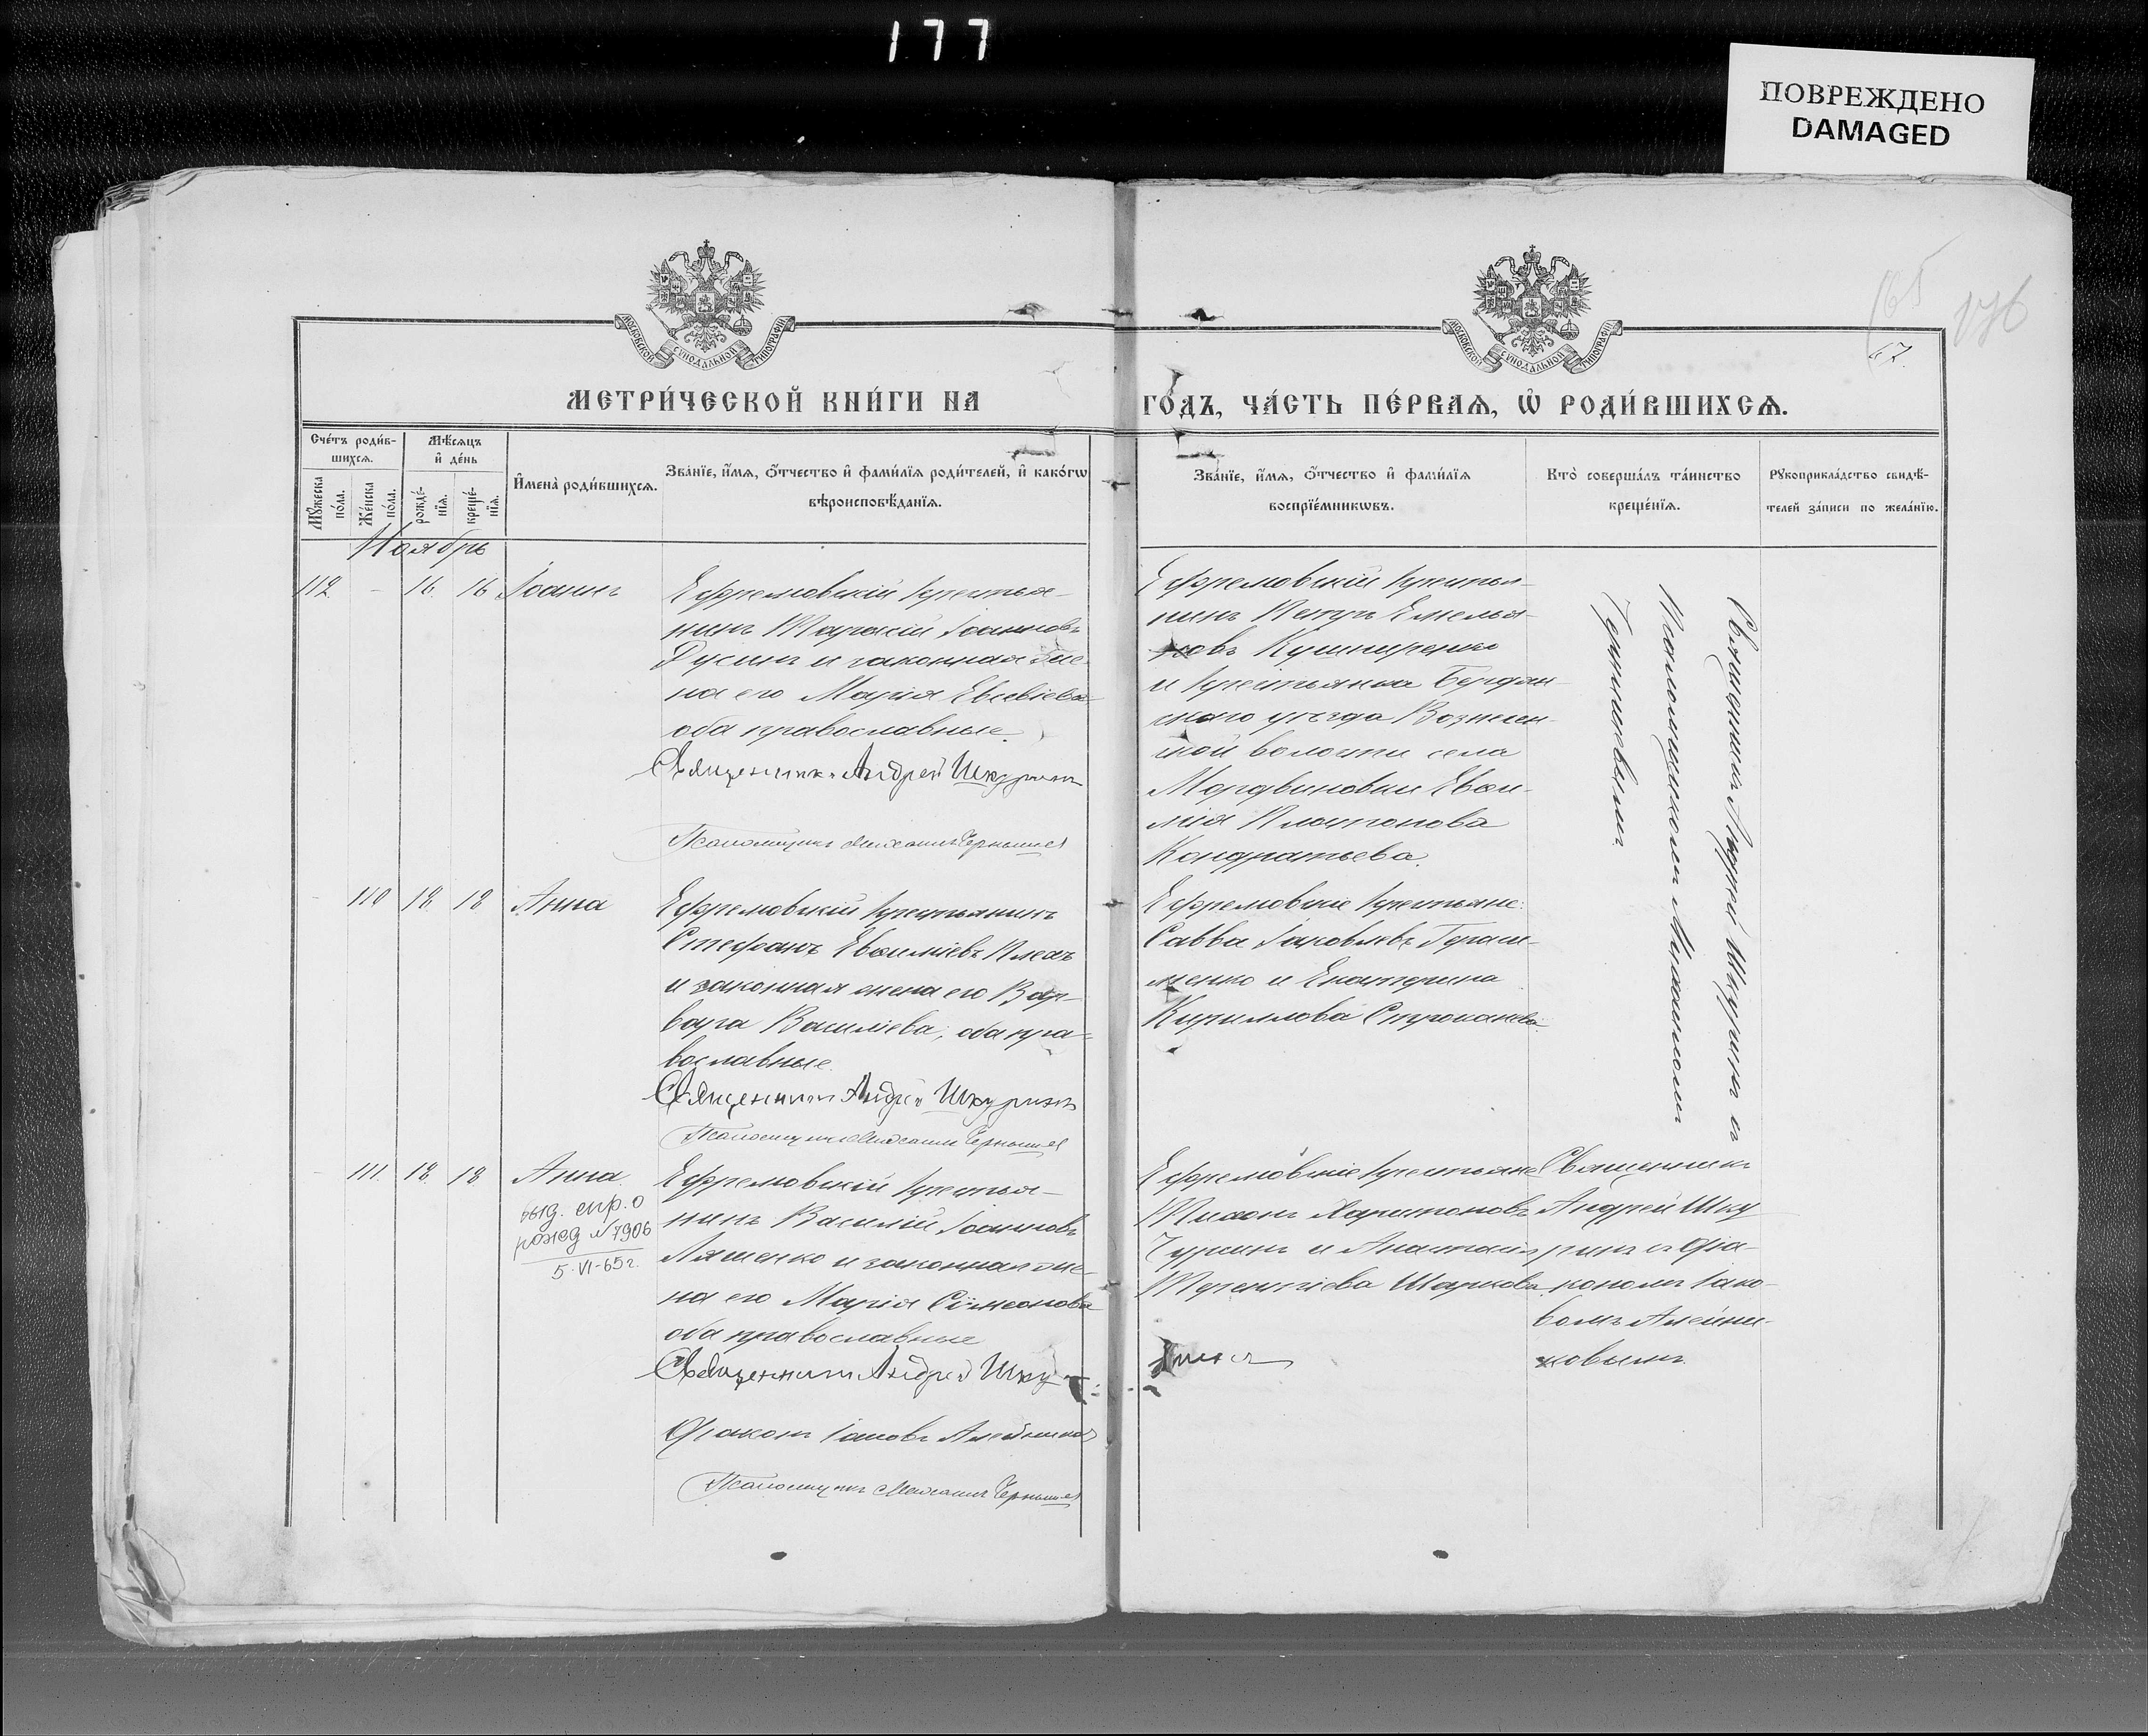 177
ПОВРЕЖДЕНО
DAMAGED
МОСКОВСКОЙ СѴНОДАЛЬНОЙ ТИПОГРАФІИ
МОСКОВСКОЙ СѴНОДАЛЬНОЙ ТИПОГРАФІИ
165 176
67.
МЕТРИ́ЧЕСКОЙ КНИ́ГИ НА
ГО́ДЪ, ЧА́СТЬ ПЕ́РВАѦ, Ѡ РОДИ́ВШИХСѦ.
Сче́тъ роди́в-
шихсѧ.
Мꙋ́жеска по́ла.
Же́нска по́ла.
Мѣ́сѧцъ
и҆ де́нь
рожде́-
нїѧ.
креще́-
нїѧ.
И҆мена̀ роди́вшихсѧ.
Зва́нїе, и҆́мѧ, ѻ҆́тчество и҆ фами́лїѧ роди́телей, и҆ како́гѡ
вѣроисповѣ́данїѧ.
Зва́нїе, и҆́мѧ, ѻ҆́тчество и҆ фами́лїѧ
воспрїе́мникѡвъ.
Кто̀ соверша́лъ та́инство
креще́нїѧ.
Рꙋкоприкла́дство свидѣ́-
телей за́писи по жела́нїю.
Ноябрь
112 - 16. 16 Іоаннъ
Ефремовскій крестья-
нинъ Тарасій Іоанновъ
Русинъ и законная же-
на его Марія Евсевіева
оба православные.
Священникъ Андрей Шкуринъ
Псаломщикъ Михаилъ Чернышев
Ефремовскій крестья-
нинъ Петръ Емелья-
новъ Кушниренко
и крестьянка Бердян-
скаго уѣзда Вознесен-
ской волости села
Мордвиновки Евѳи-
мія Платонова
Кондратьева.
Священникъ Андрей Шкуринъ съ
Псаломщикомъ Михаиломъ
Чернышевымъ.
- 110 18. 18 Анна
Ефремовскій крестьянинъ
Стефанъ Евѳиміевъ
и законная жена его Вар-
вара Василіева, оба пра-
вославные.
Священникъ Андрей Шкуринъ
Псаломщикъ Михаилъ Чернышев
Ефремовскіе крестьяне:
Савва Іаковлевъ Гераси-
менко и Екатерина
Кириллова Строканева
- 111. 18. 18. Анна.
выд. спр. о
рожд №7906
5-VI-65г.
Ефремовскій крестья-
нинъ Василій Іоанновъ
Ляшенко и законная же-
на его Марія Сѵмеонова
оба православные
Священникъ Андрей Шку
Діаконъ Іаковъ Алейников
Псаломщикъ Михаилъ Чернышев
Ефремовскіе крестьяне
Тихонъ Харитоновъ
Чуринъ и Анастасія
Терентіева Шаркова
ринъ
Священникъ
Андрей Шку-
ринъ съ діа-
кономъ Іако-
вомъ Алейни-
ковымъ.